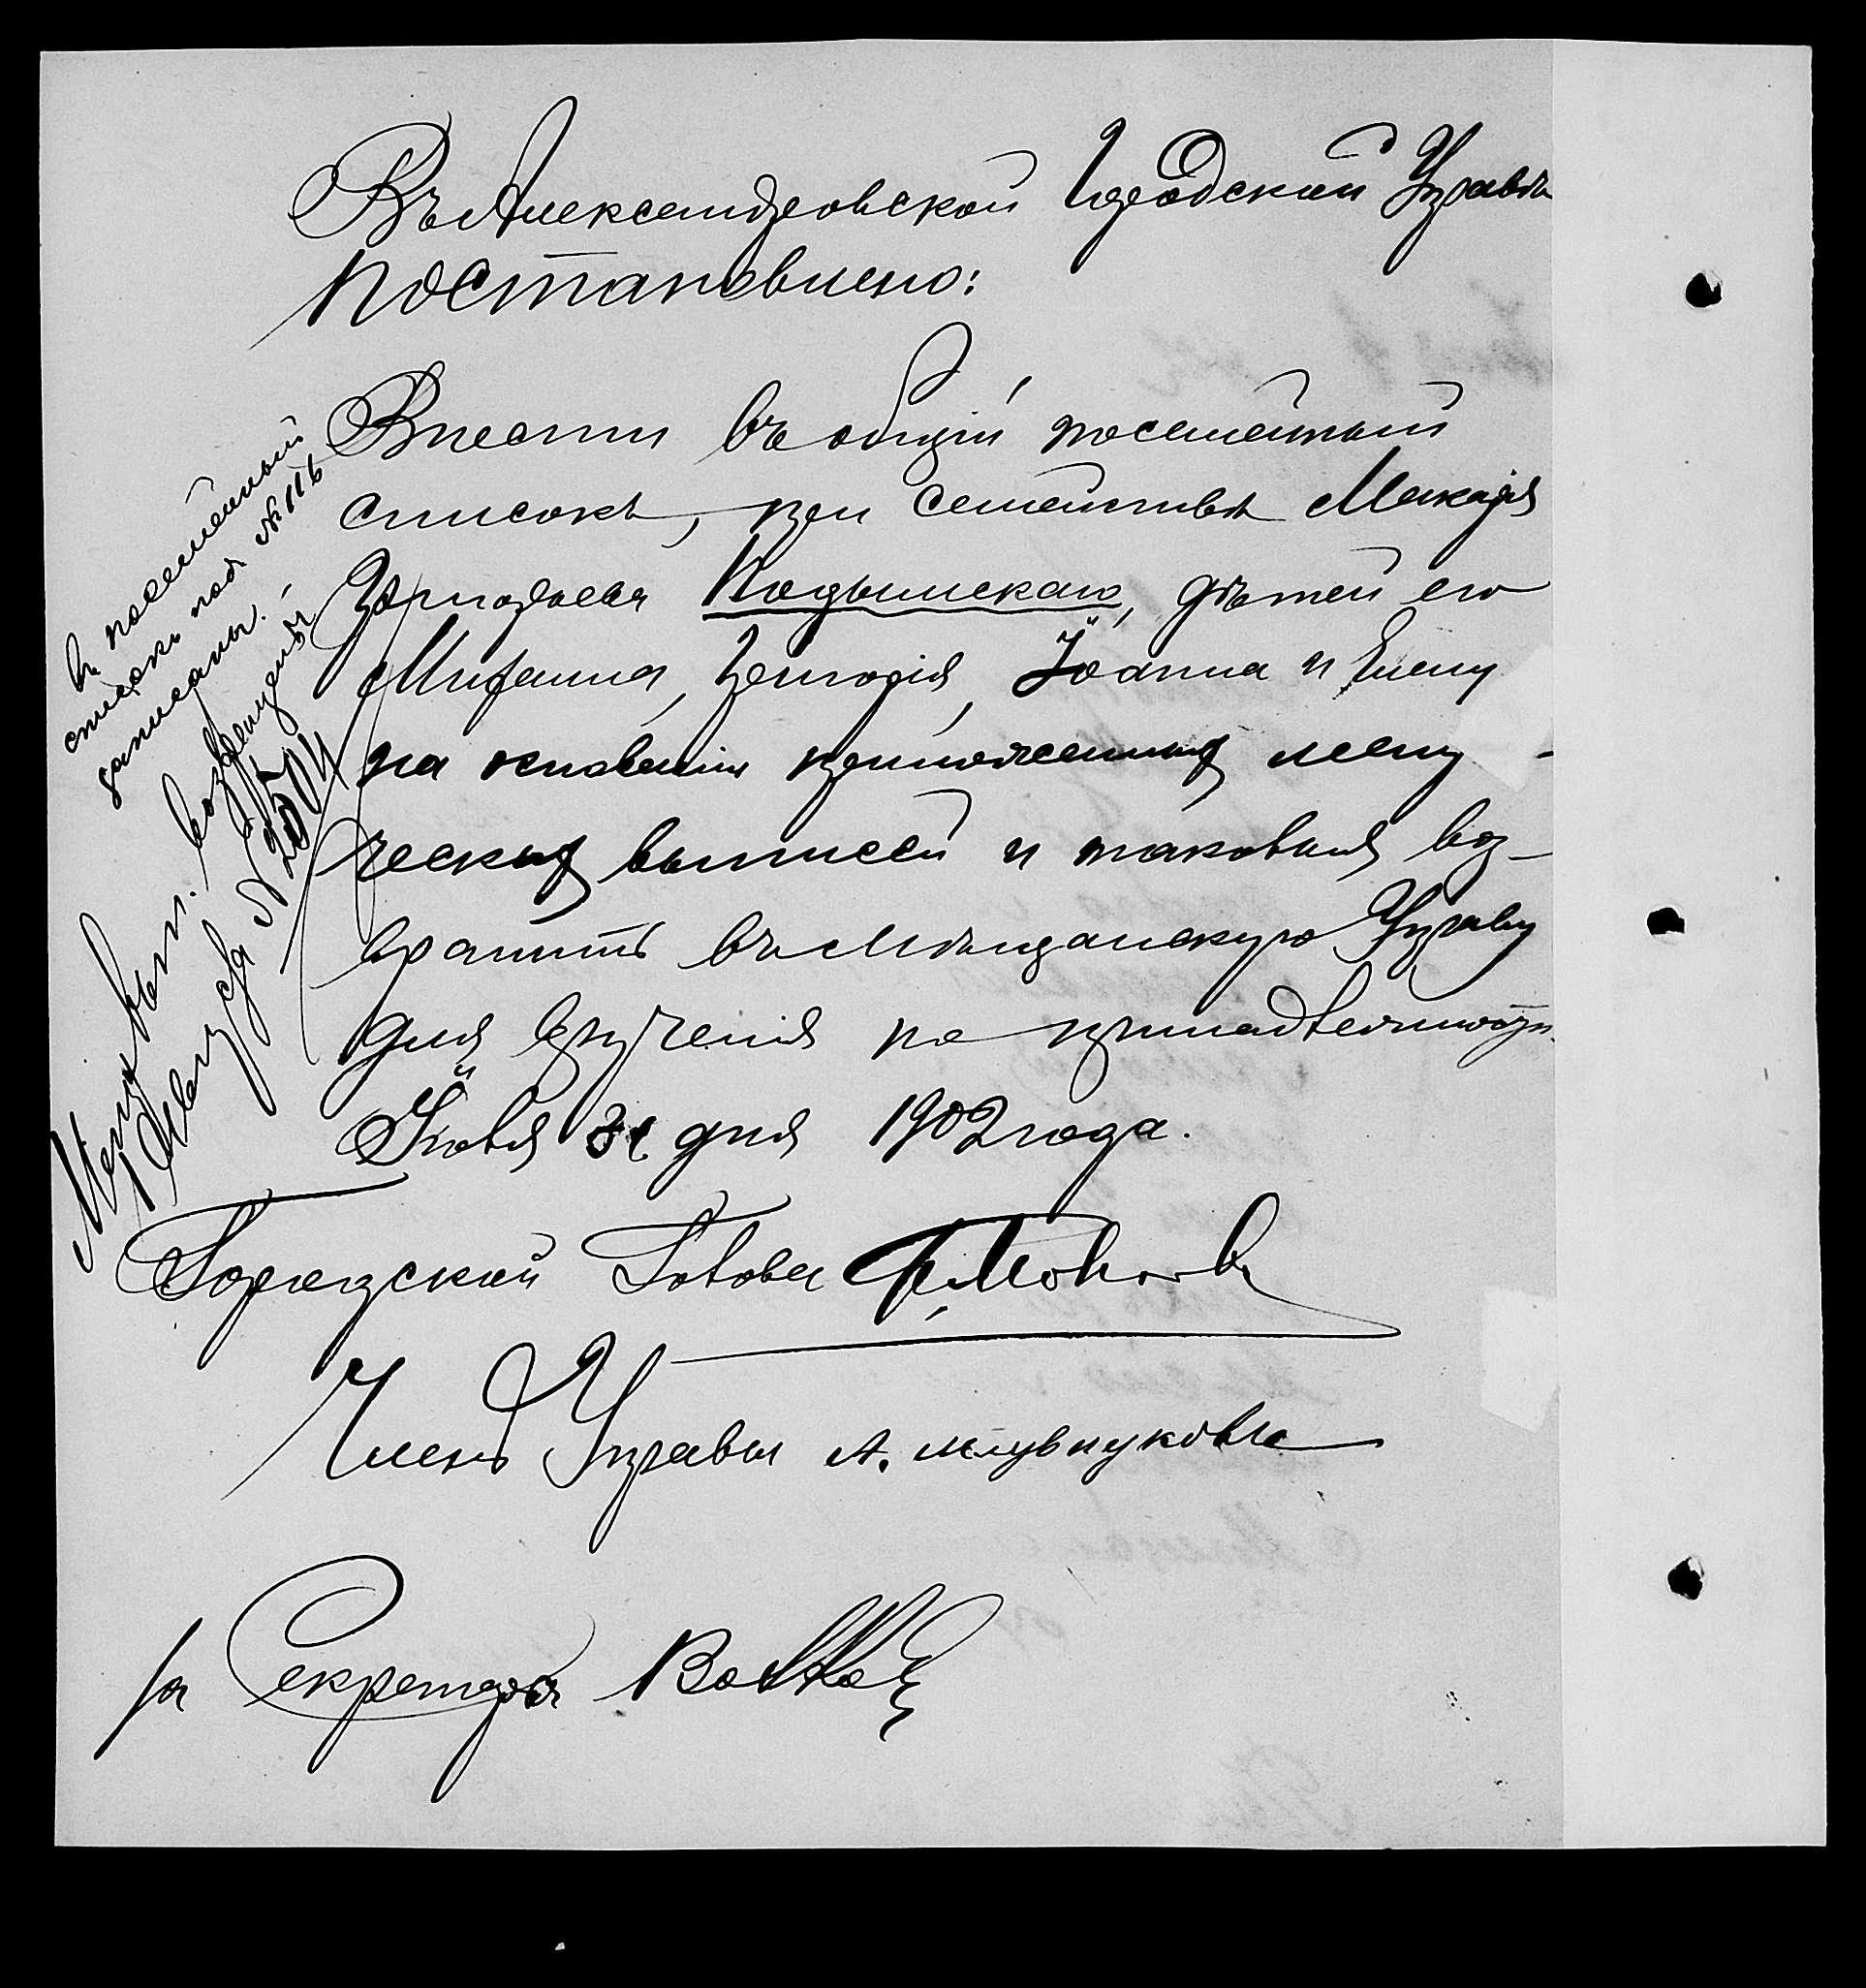 Въ Александровской Городской Управѣ
постановлено:
Внести въ общій посемейный
списокъ, при семействѣ Макарія
Григорьева дѣтей его
Михаила, Григорія, Іоанна и Елену
на основаніи приложенныхъ метри-
ческихъ выписей и таковыя воз-
вратить въ Мѣщанскую Управу
для врученія по принадлежности.
Іюля 31 дня 1902 года.
Городской Голова
Членъ Управы А.
за Секретаря
въ посемейный
списокъ под № 116
записаны.
Метр. вып. возвращены
№ 2504